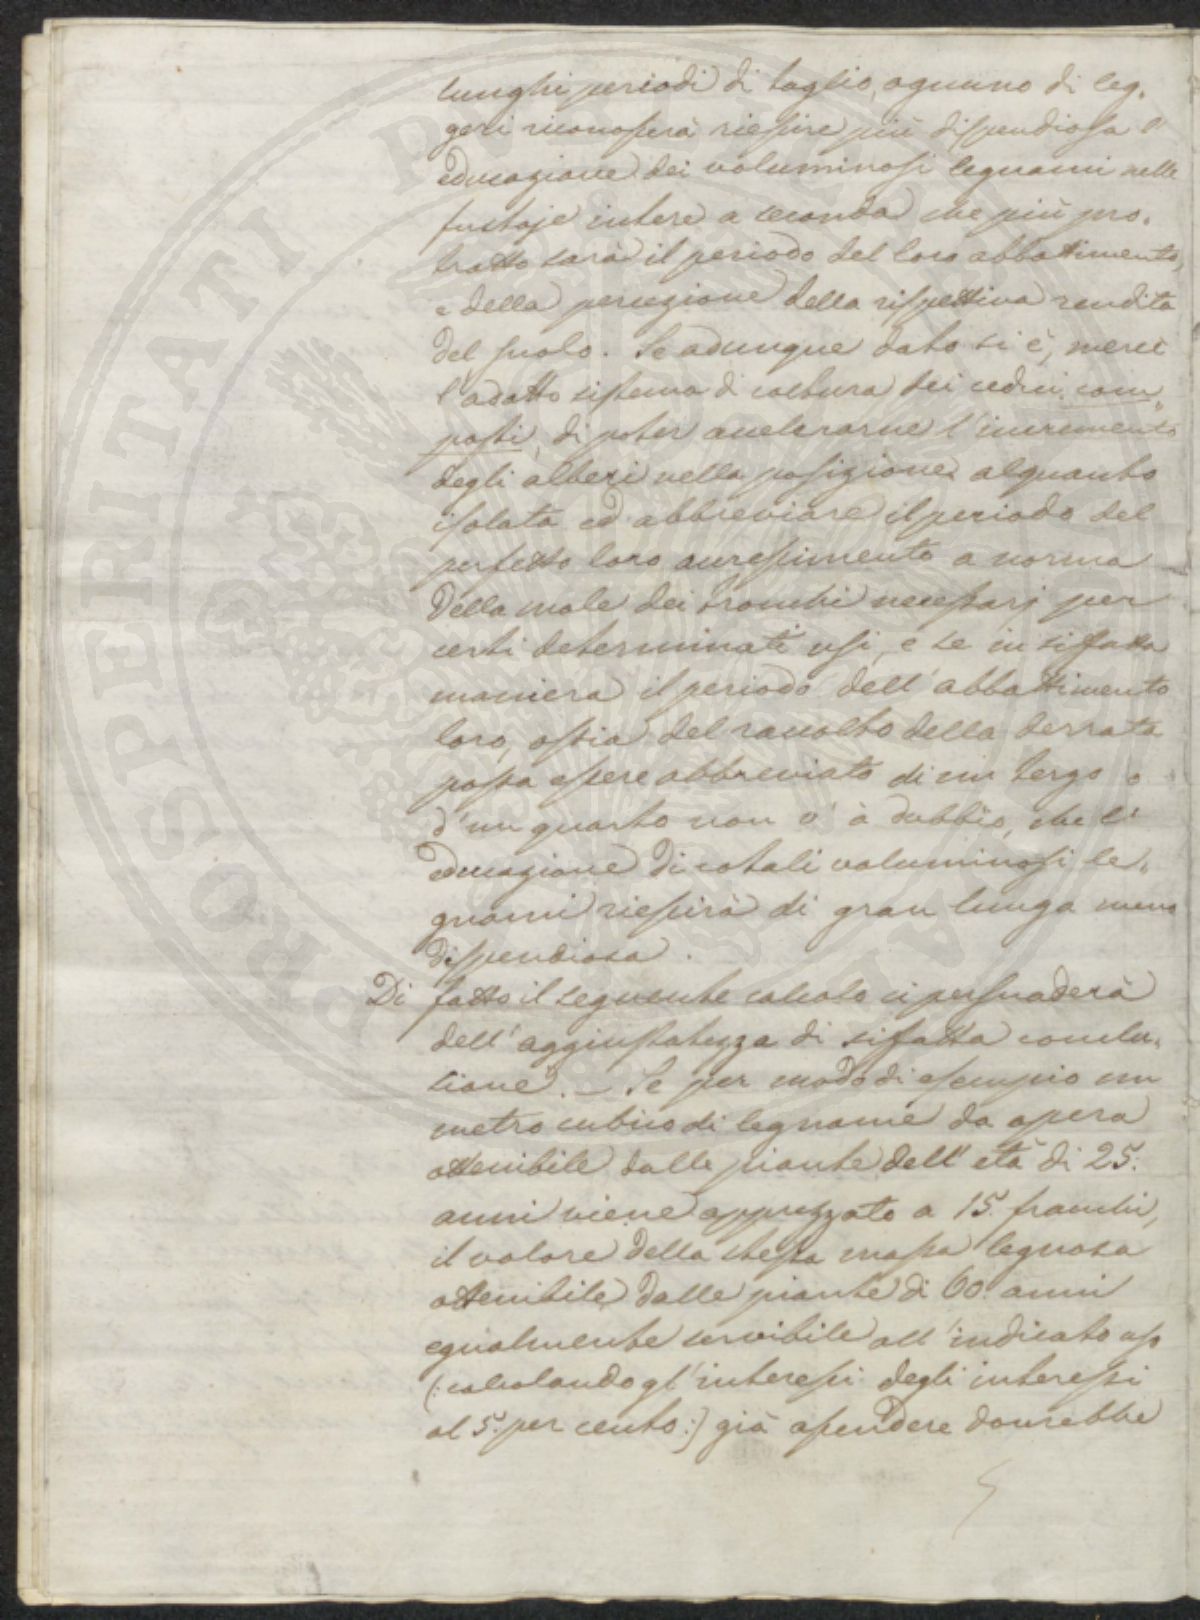 lunghi periodi di taglio, ognuno di leg-
geri riconoscerà riescire più dispendiosa l'
educazione dei voluminosi legnami nelle
fustaje intere a seconda che più pro-
tratto sarà il periodo del loro abbattimento,
e della percezione della rispettiva rendita
del suolo. Se adunque dato si è, mercè
l'adatto sistema di coltura dei cedui com-
posti, di poter accelerarne l'incremento
degli alberi nella posizione alquanto
isolata ed abbreviare il periodo del
perfetto loro accrescimento a norma
della mole dei tronchi necessarj per
certi determinati usi, e se in siffatta
maniera il periodo dell'abbattimento
loro, ossia del raccolto della derrata
possa essere abbreviato di un terzo o
d'un quarto non v'à dubbio, che l'
educazione di cotali voluminosi le-
gnami riescirà di gran lunga meno
dispendiosa.
Di fatto il seguente calcolo ci persuaderà
dell'aggiustatezza di siffatta conclu-
sione. — Se per modo di esempio un
metro cubico di legname da opera
ottenibile dalle piante dell'età di 25.
anni viene apprezzato a 15. franchi,
il valore della stessa massa legnosa
ottenibile dalle piante di 60. anni
egualmente servibile all'indicato uso
(: calcolando gl'interessi degli interessi
al 5. per cento :) già ascendere dovrebbe
PROSPERITATI PUBLICAE